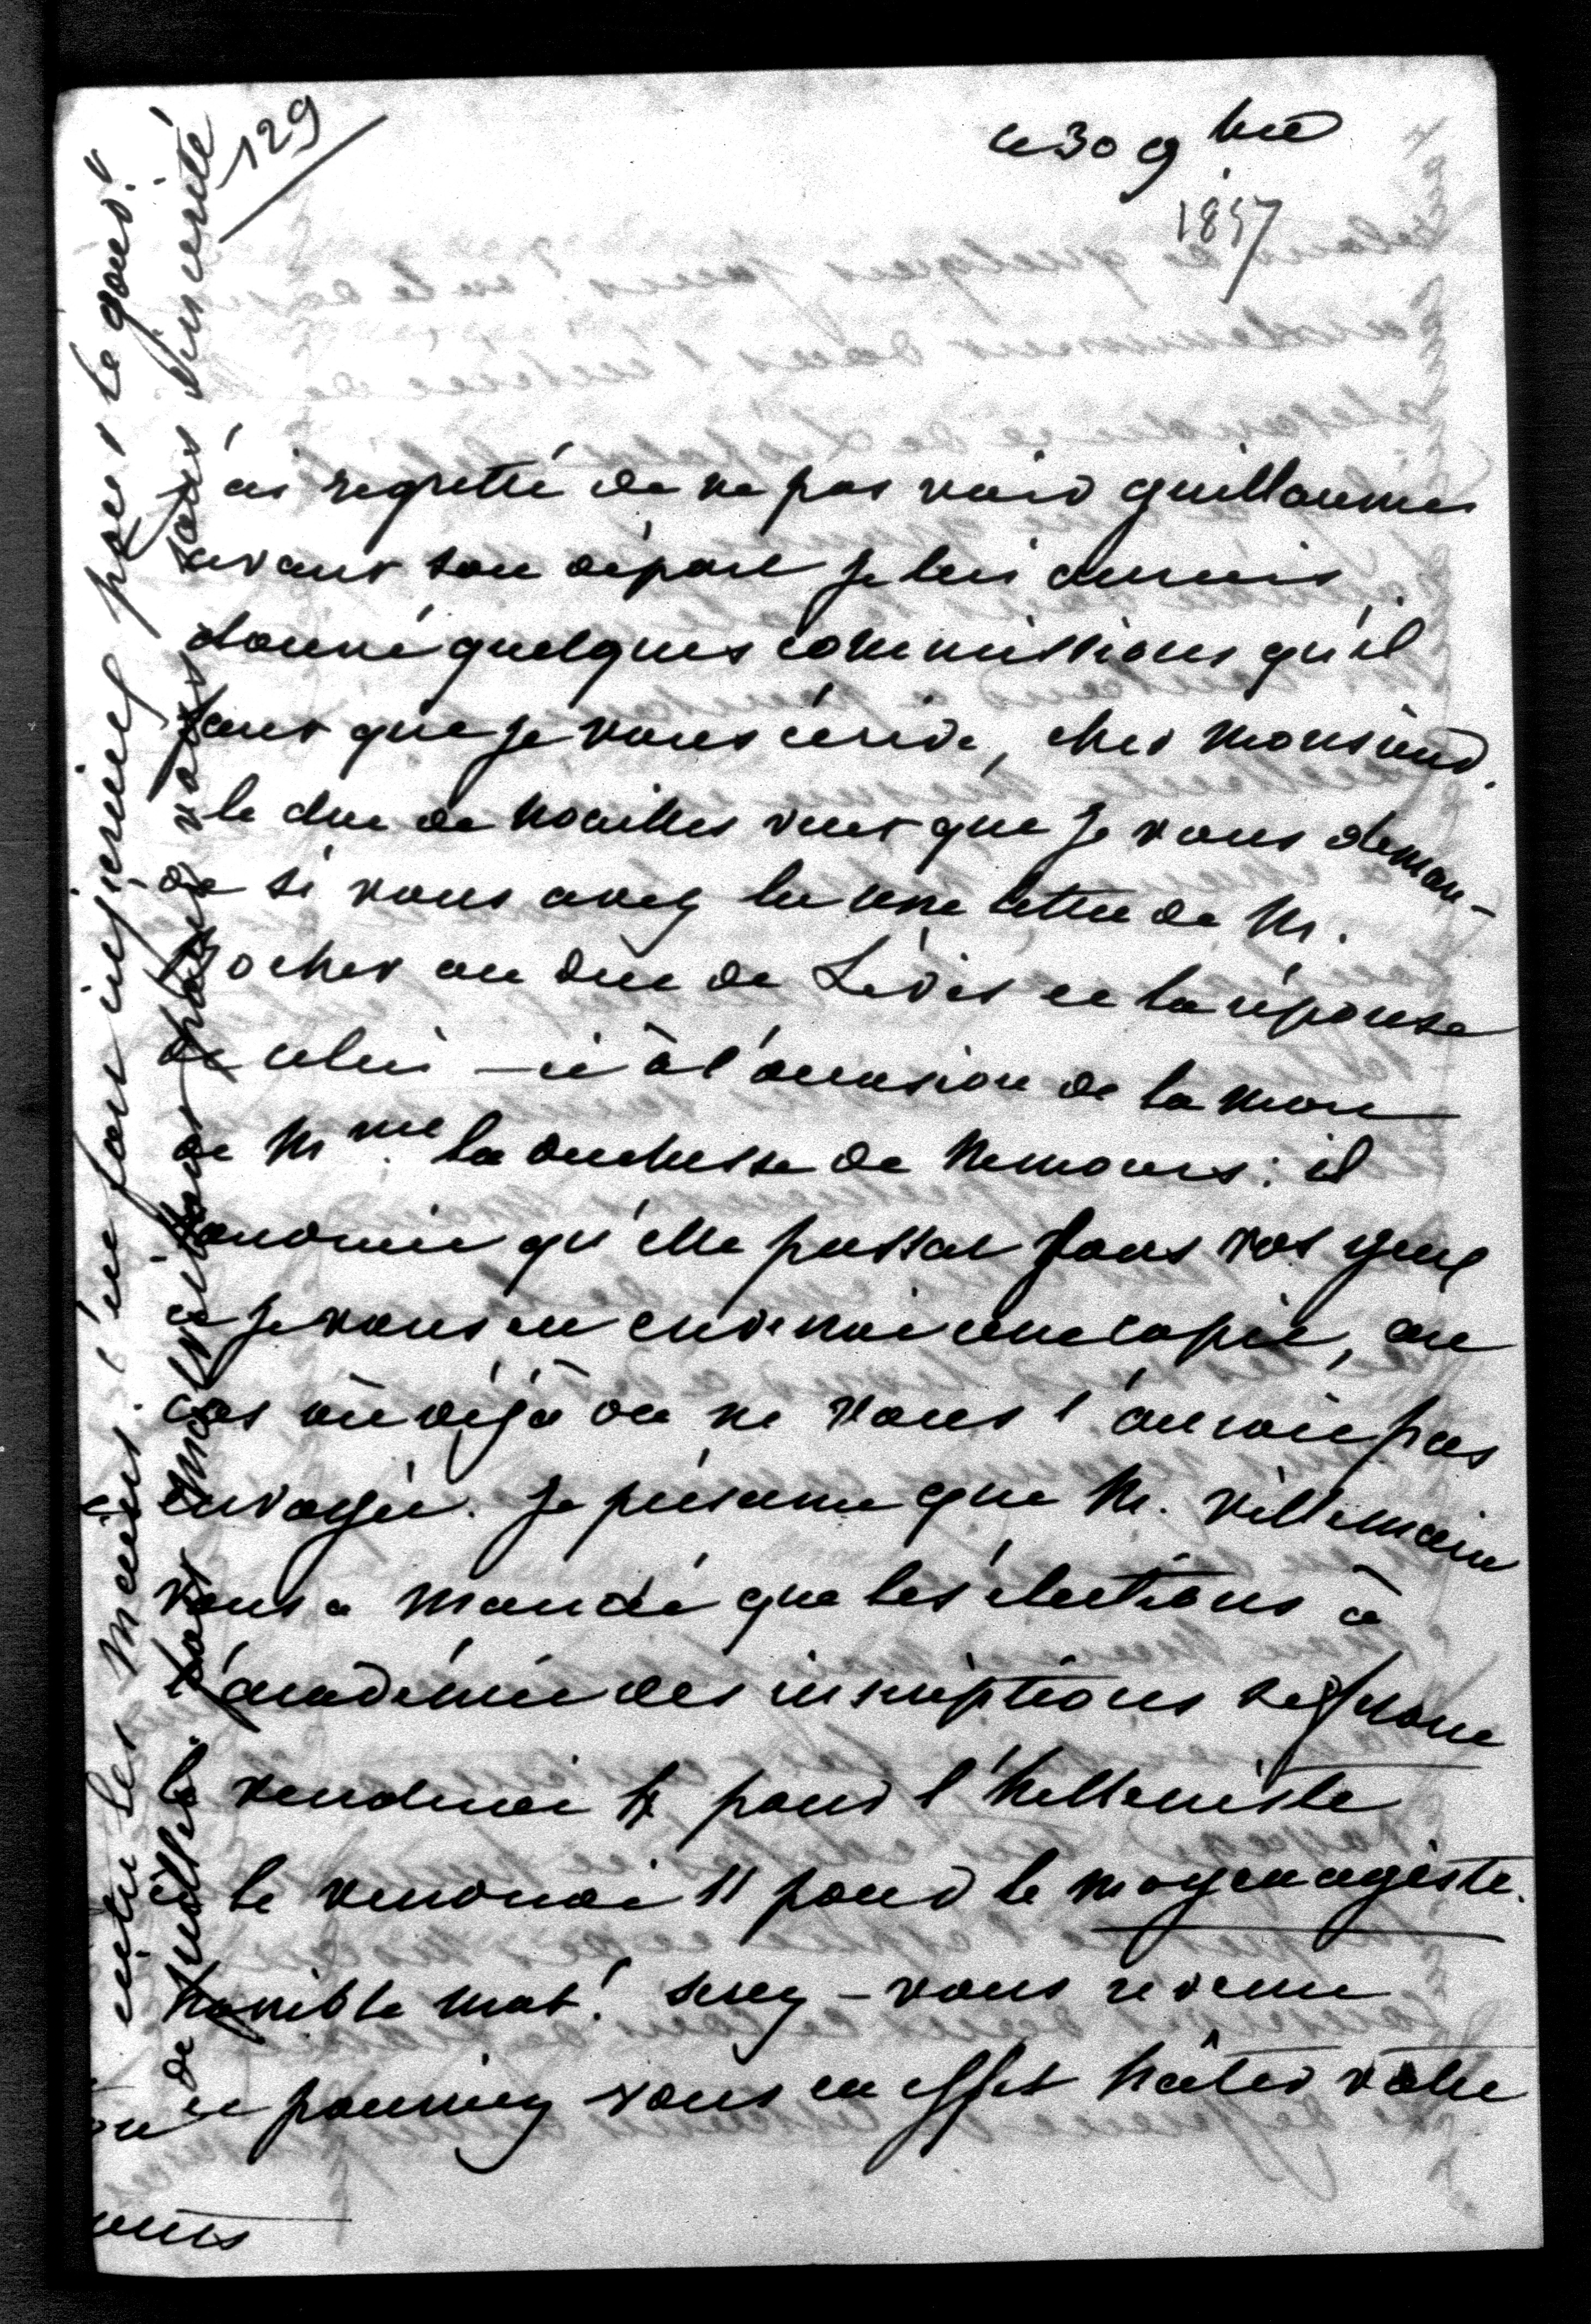 129
ce 30 9bre
1857
j'ai regretté de ne pas voir guillaume
avant son départ je lui aurais
donné quelques commissions qu'il
faut que je vous écrive, cher Monsieur.
le duc de Noailles veut que je vous deman-
de si vous avez lu une lettre de M.
Rocher au duc de Lévis et la réponse
de celui-ci à l'occasion de la mort
de Mme la duchesse de Nemours: il
voudrait qu'elle passat sous vos yeux
et je vous en enverrai une copie, au
cas où déjà on ne vous l'auroit pas
envoyée. je présume que M. Villemain
vous a mandé que les élections à
l'académie des inscriptions se feront
le vendredi 4 pour l'helleniste
et le vendredi 11 pour le moyenagiste.
horrible mot! serez-vous revenu
et pourriez vous en effet hâter votre
entre les mains. l'un fort ingénieux pour le gouv.t
de juillet.
pour vous sincérité